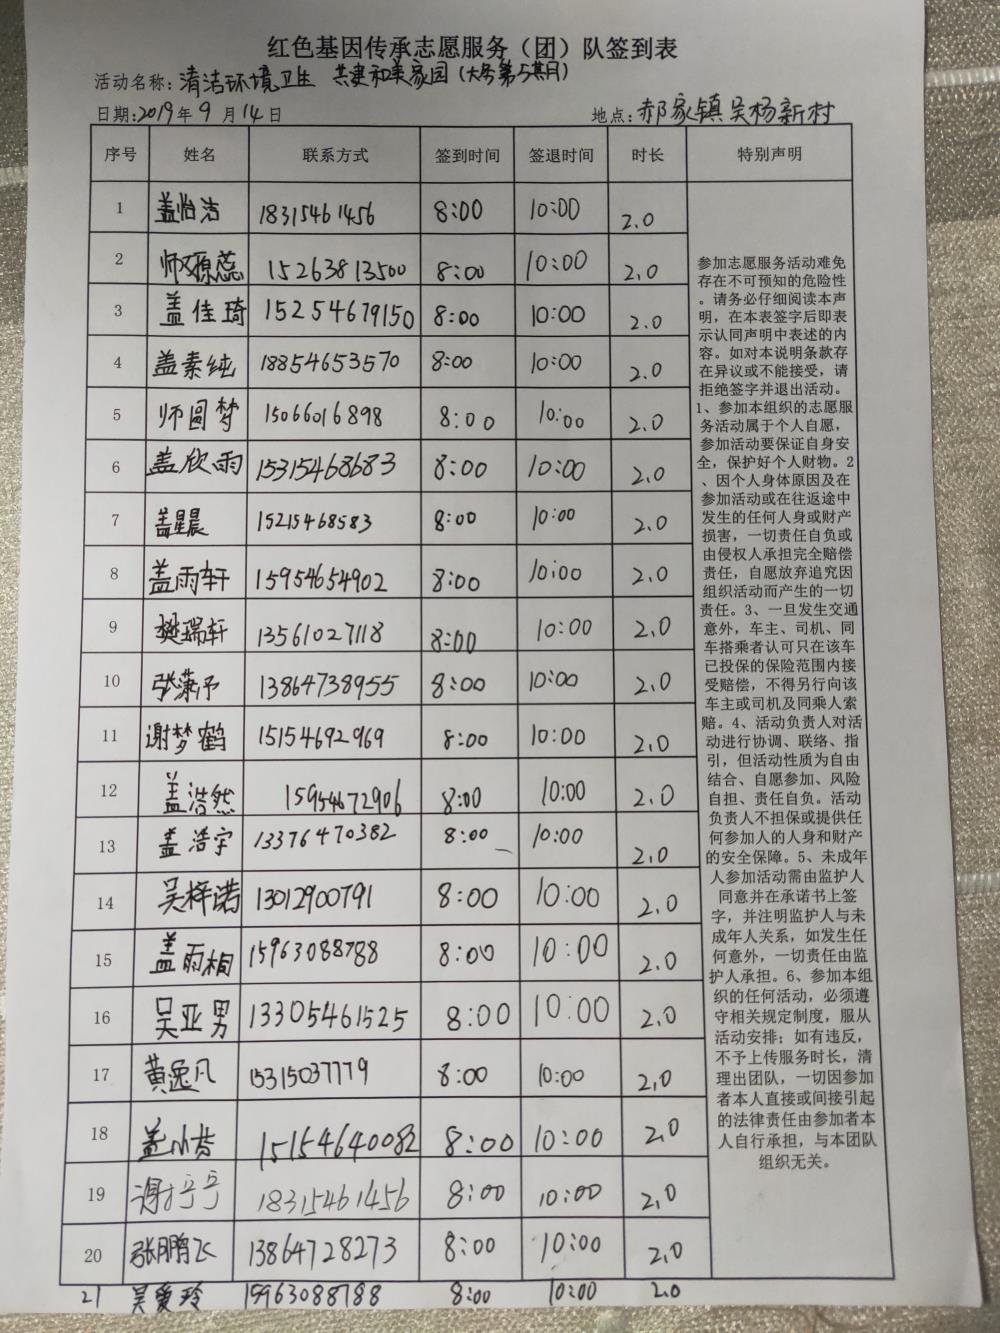 红色基因传承志愿服务（团）队签到表
活动名称：清洁环境卫生 共建和美家园
日期：2019年9月14日 地点：郝家镇吴杨新村
序号 姓名 联系方式 签到时间 签退时间 时长 特别声明
1 盖怡洁 18315461456 8:00 10:00 2.0
2 15263813500 8:00 10:00 2.0
3 盖佳琦 15254679150 8:00 10:00 2.0
4 盖素纯 18854653570 8:00 10:00 2.0
5 师圆梦 15066016898 8:00 10:00 2.0
6 盖欣雨 15315468683 8:00 10:00 2.0
7 盖星晨 15215468583 8:00 10:00 2.0
8 盖雨轩 15954654902 8:00 10:00 2.0
9 樊瑞轩 13561027118 8:00 10:00 2.0
10 张潇予 13864738955 8:00 10:00 2.0
11 谢梦鹤 15154692969 8:00 10:00 2.0
12 盖浩然 15954672906 8:00 10:00 2.0
13 盖浩宇 13376470382 8:00 10:00 2.0
14 吴梓诺 13012900791 8:00 10:00 2.0
15 盖雨桐 15963088788 8:00 10:00 2.0
16 吴亚男 13305461525 8:00 10:00 2.0
17 黄逸凡 15315037779 8:00 10:00 2.0
18 盖小 15154640082 8:00 10:00 2.0
19 谢 18315461456 8:00 10:00 2.0
20 张鹏飞 13864728273 8:00 10:00 2.0
21 吴爱玲 15963088788 8:00 10:00 2.0
参加志愿服务活动难免
存在不可预知的危险性
。请务必仔细阅读本声
明，在本表签字后即表
示认同声明中表述的内
容。如对本说明条款存
在异议或不能接受，请
拒绝签字并退出活动。
1、参加本组织的志愿服
务活动属于个人自愿，
参加活动要保证自身安
全，保护好个人财物。2
、因个人身体原因及在
参加活动或在往返途中
发生的任何人身或财产
损害，一切责任自负或
由侵权人承担完全赔偿
责任，自愿放弃追究因
组织活动而产生的一切
责任。3、一旦发生交通
意外，车主、司机、同
车搭乘者认可只在该车
已投保的保险范围内接
受赔偿，不得另行向该
车主或司机及同乘人索
赔。4、活动负责人对活
动进行协调、联络、指
引，但活动性质为自由
结合、自愿参加、风险
自担、责任自负。活动
负责人不担保或提供任
何参加人的人身和财产
的安全保障。5、未成年
人参加活动需由监护人
同意并在承诺书上签
字，并注明监护人与未
成年人关系，如发生任
何意外，一切责任由监
护人承担。6、参加本组
织的任何活动，必须遵
守相关规定制度，服从
活动安排；如有违反，
不予上传服务时长，清
理出团队，一切因参加
者本人直接或间接引起
的法律责任由参加者本
人自行承担，与本团队
组织无关。